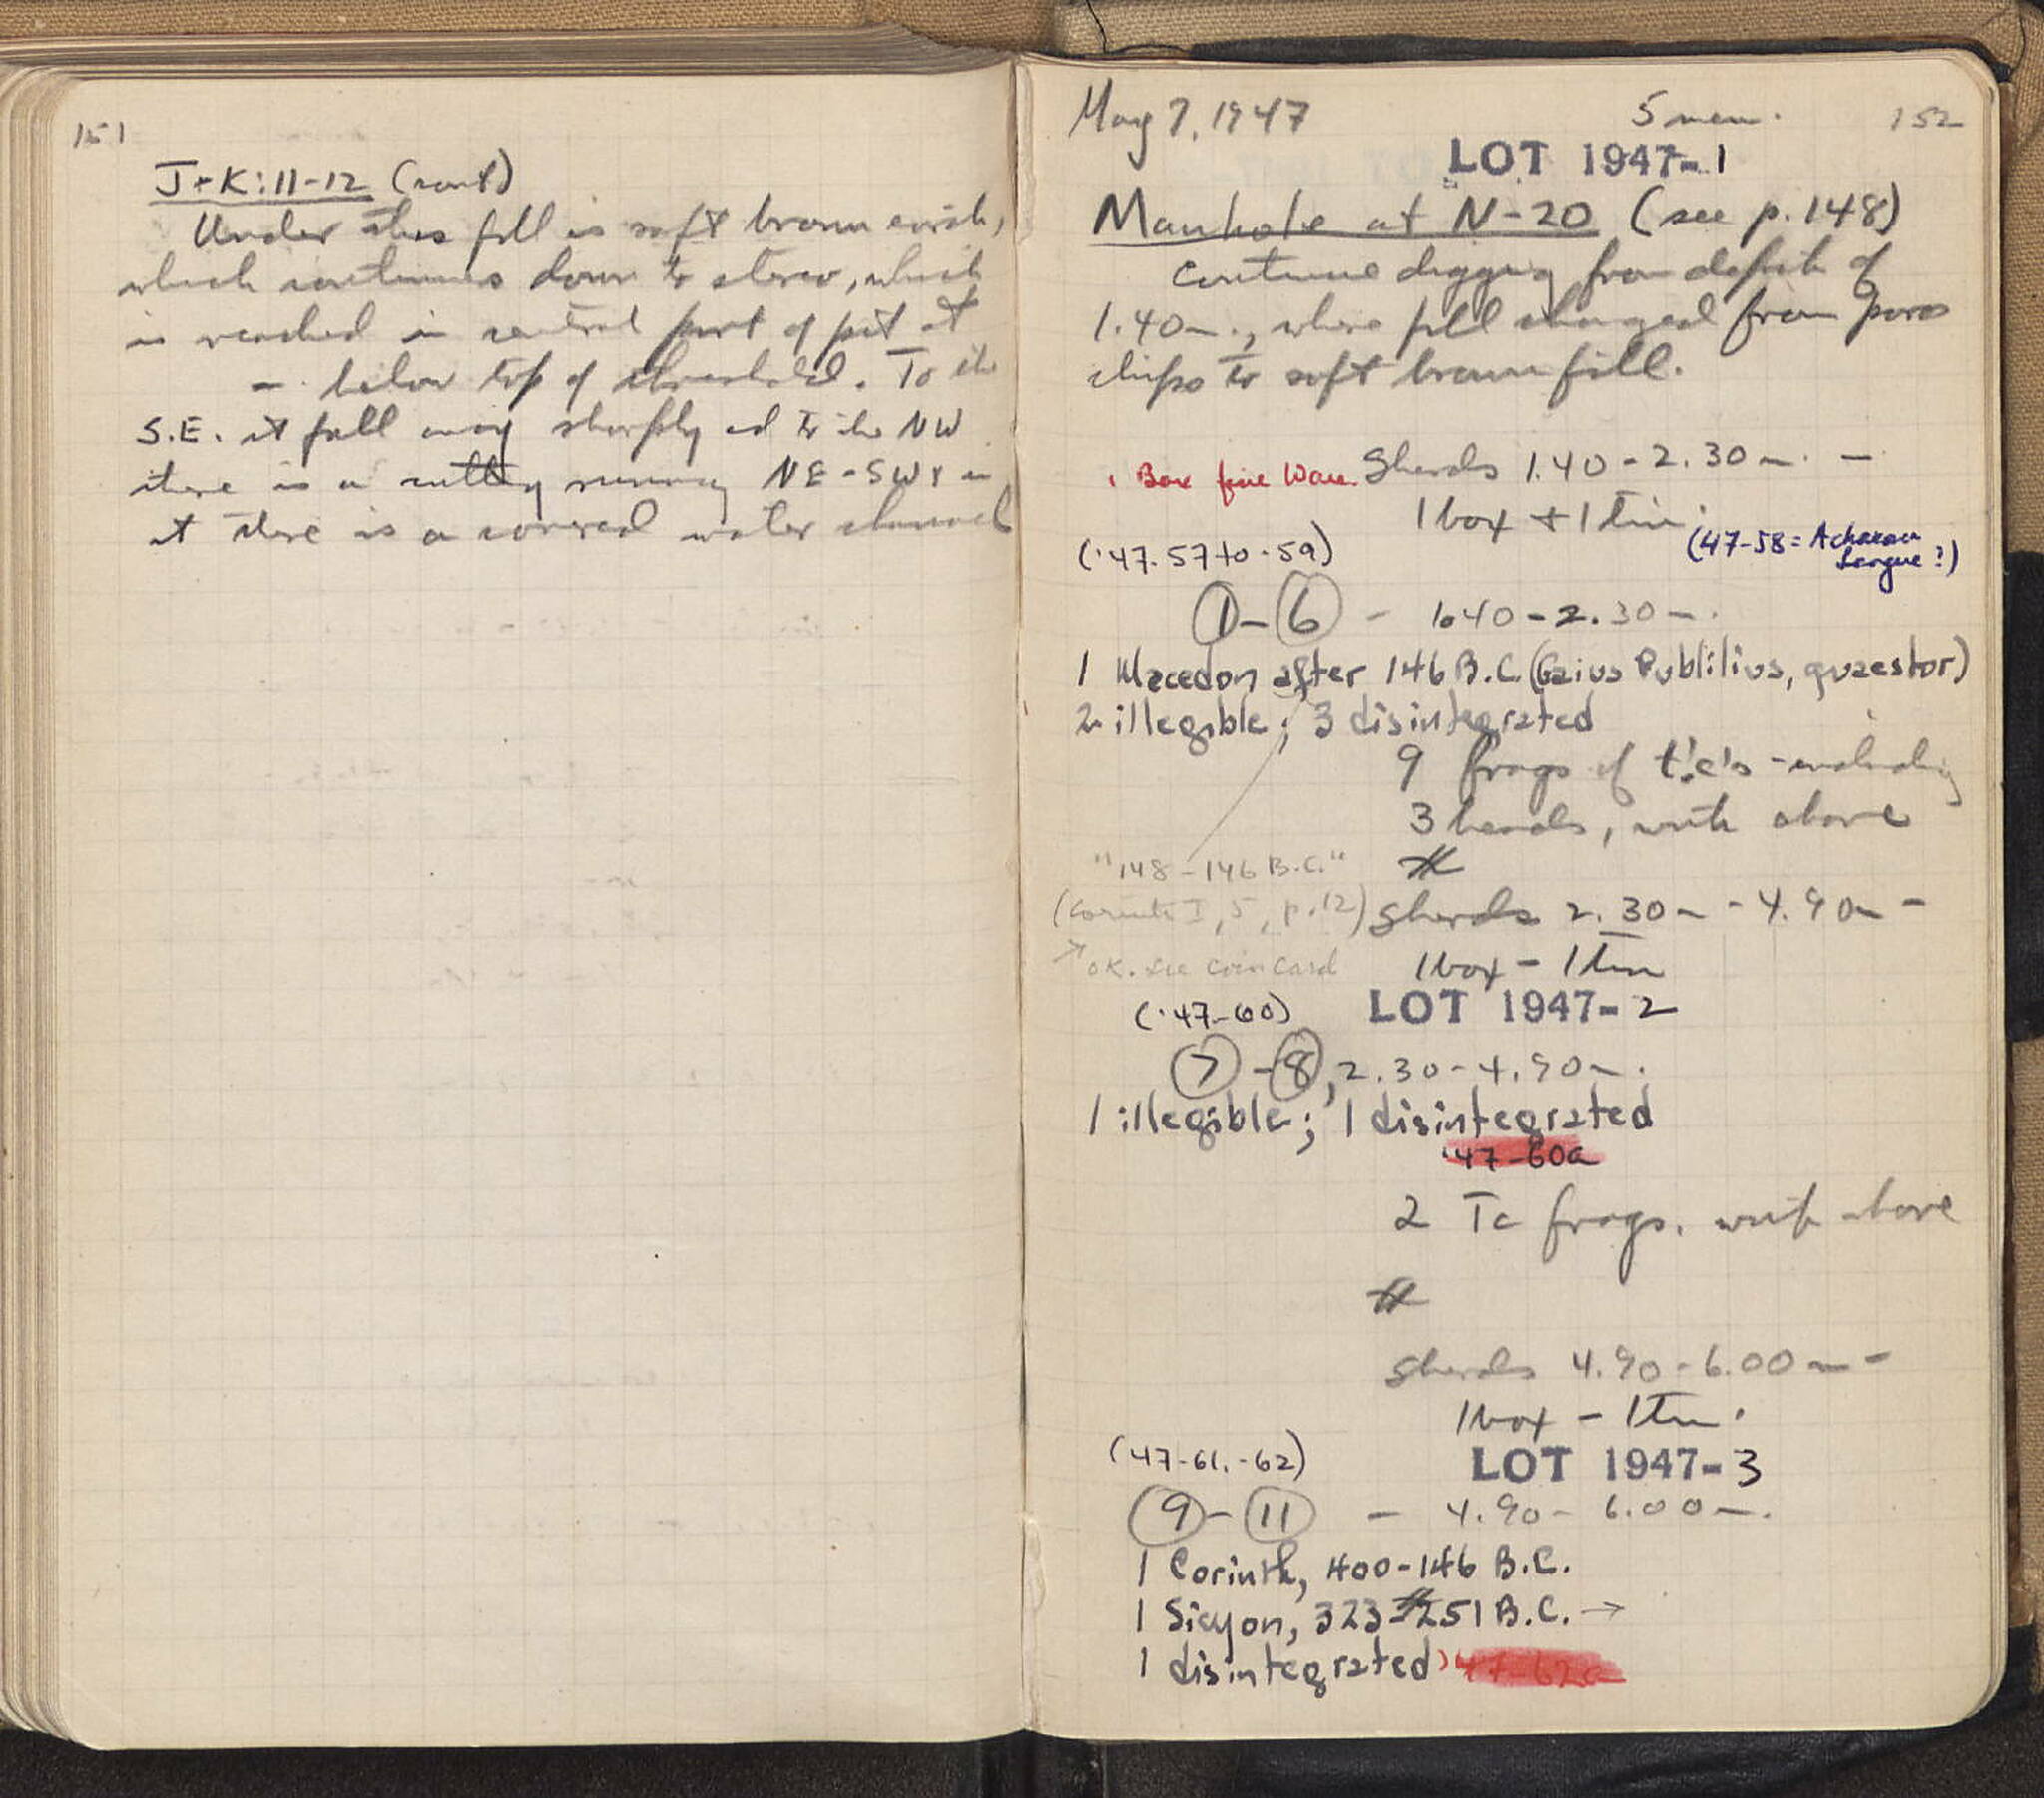 151
J+K:11-12 (cont)
Under this fill is soft brown earth,
which continues down to stereo, which
is reached in central part of pit at
- below top of threshold. To the
S.E. it fall away sharply and to the NW
there is a cutting running NE-SW & in
it there is a covered water channel
May 7, 1947 5 men. 152
LOT 1947-1
Manhole at N-20 (see p.148)
Continue digging from depth of
1.40m., where fill changed from poros
chips to soft brown fill.
1 Box fine Ware. Sherds 1.40-2.30m. -
1 box + 1 tin.
('47-57 to -59) (47-58 = Achaean
League?)
1-6 - 1.40-2.30m.
1 Macedon after 146 B.C. (Gaius Publilius, quaestor)
2 illegible; 3 disintegrated
9 frags of t.c's - including
3 heads, with above
"148-146 B.C."
(Corinth I, 5, p.12) Sherds 2.30m - 4.90m -
→ OK. see coin card 1 box - 1 tin
LOT 1947-2
('47-60)
7-8, 2.30-4.90m.
1 illegible; 1 disintegrated
'47-60a
2 Tc frags. with above
Sherds 4.90-6.00m -
1 box - 1 tin.
('47-61, -62) LOT 1947-3
9-11 - 4.90-6.00m.
1 Corinth, 400-146 B.C.
1 Sicyon, 323-251 B.C. →
1 disintegrated) 47-62a